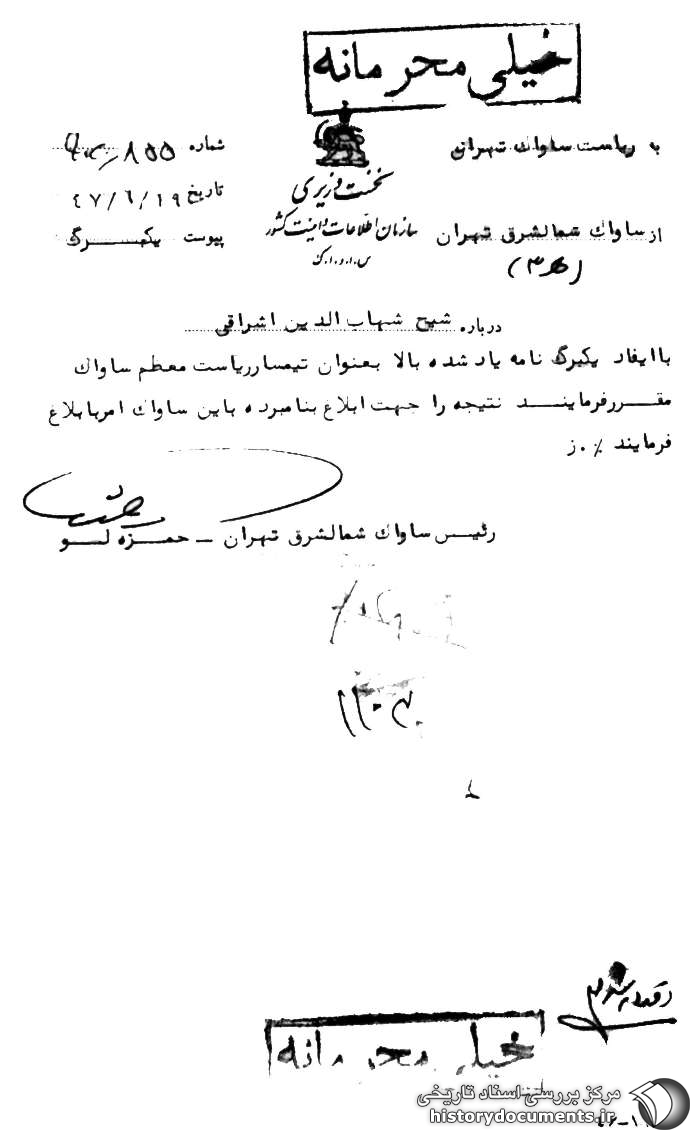 خیلی محرمانه
به ریاست ساواک تهران
از ساواک شمالشرق تهران
(۳ه‍)
نخست وزیری
سازمان اطلاعات و امنیت کشور
س.ا.و.ا.ک
شماره ۸۵۵
تاریخ ۴۷/۶/۱۹
پیوست یکبرگ
درباره شیخ شهاب الدین اشراقی
با ایفاد یکبرگ نامه یاد شده بالا بعنوان تیمسار ریاست معظم ساواک
مقرر فرمایند نتیجه را جهت ابلاغ بنامبرده باین ساواک امر با بلاغ
فرمایند ٪. ز
رئیس ساواک شمالشرق تهران - حمزه لو
خیلی محرمانه
مرکز بررسی اسناد تاریخی
historydocuments.ir